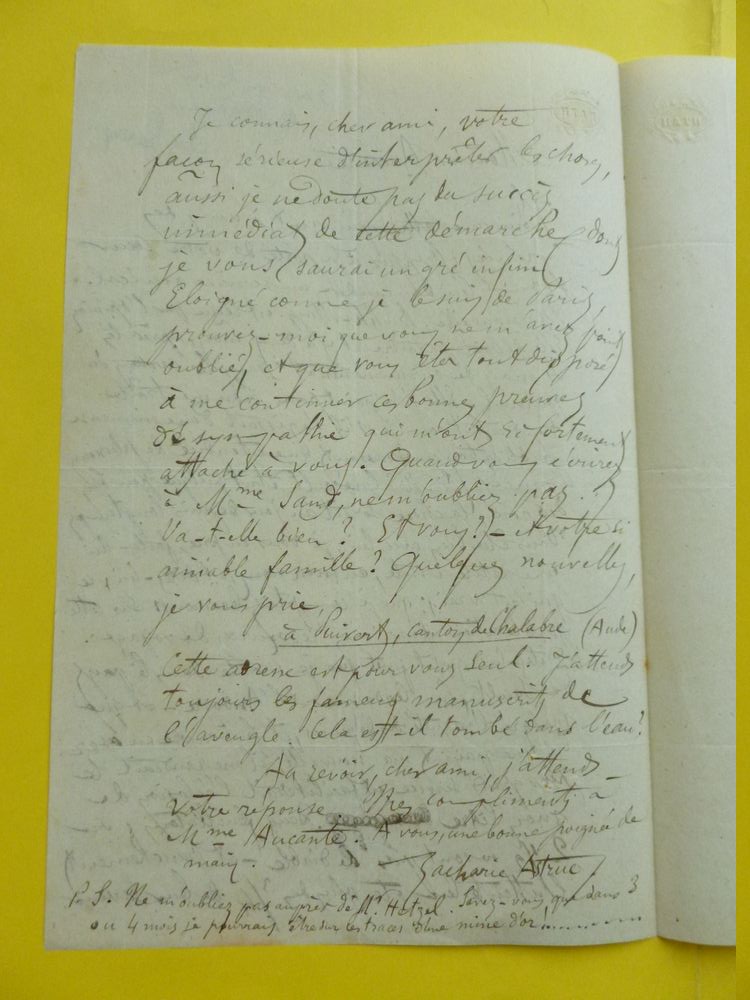 Je connais, cher ami, votre
façon sérieuse d'interprêter les choses,
aussi je ne doute pas du succès
immédiat de cette démarche dont
je vous saurai un gré infini
Eloigné comme je le suis de Paris,
prouvez-moi que vous ne m'avez point
oublié, et que vous êtes tout disposé
à me continuer ces bonnes preuves
de sympathie qui m'ont si fortement
attaché à vous. Quand vous écrirez
à Mme Sand, ne m'oubliez pas.
Va-t-elle bien? Et vous? - et votre si
aimable famille? Quelques nouvelles,
je vous prie,
à Puivert, canton de Chalabre (Aude)
Cette adresse est pour vous seul. J'attends
toujours les fameux manuscrits de
l'aveugle. Cela est-il tombé dans l'eau?
Au revoir, cher ami, j'attends
votre réponse. Mes compliments a
Mme Aucante. A vous, une bonne poignée de
main.
Zacharie Astruc
P. S. Ne m'oubliez pas auprès de Mr Hetzel. Savez-vous que dans 3
ou 4 mois je pourrais être sur les traces d'une mine d'or!........